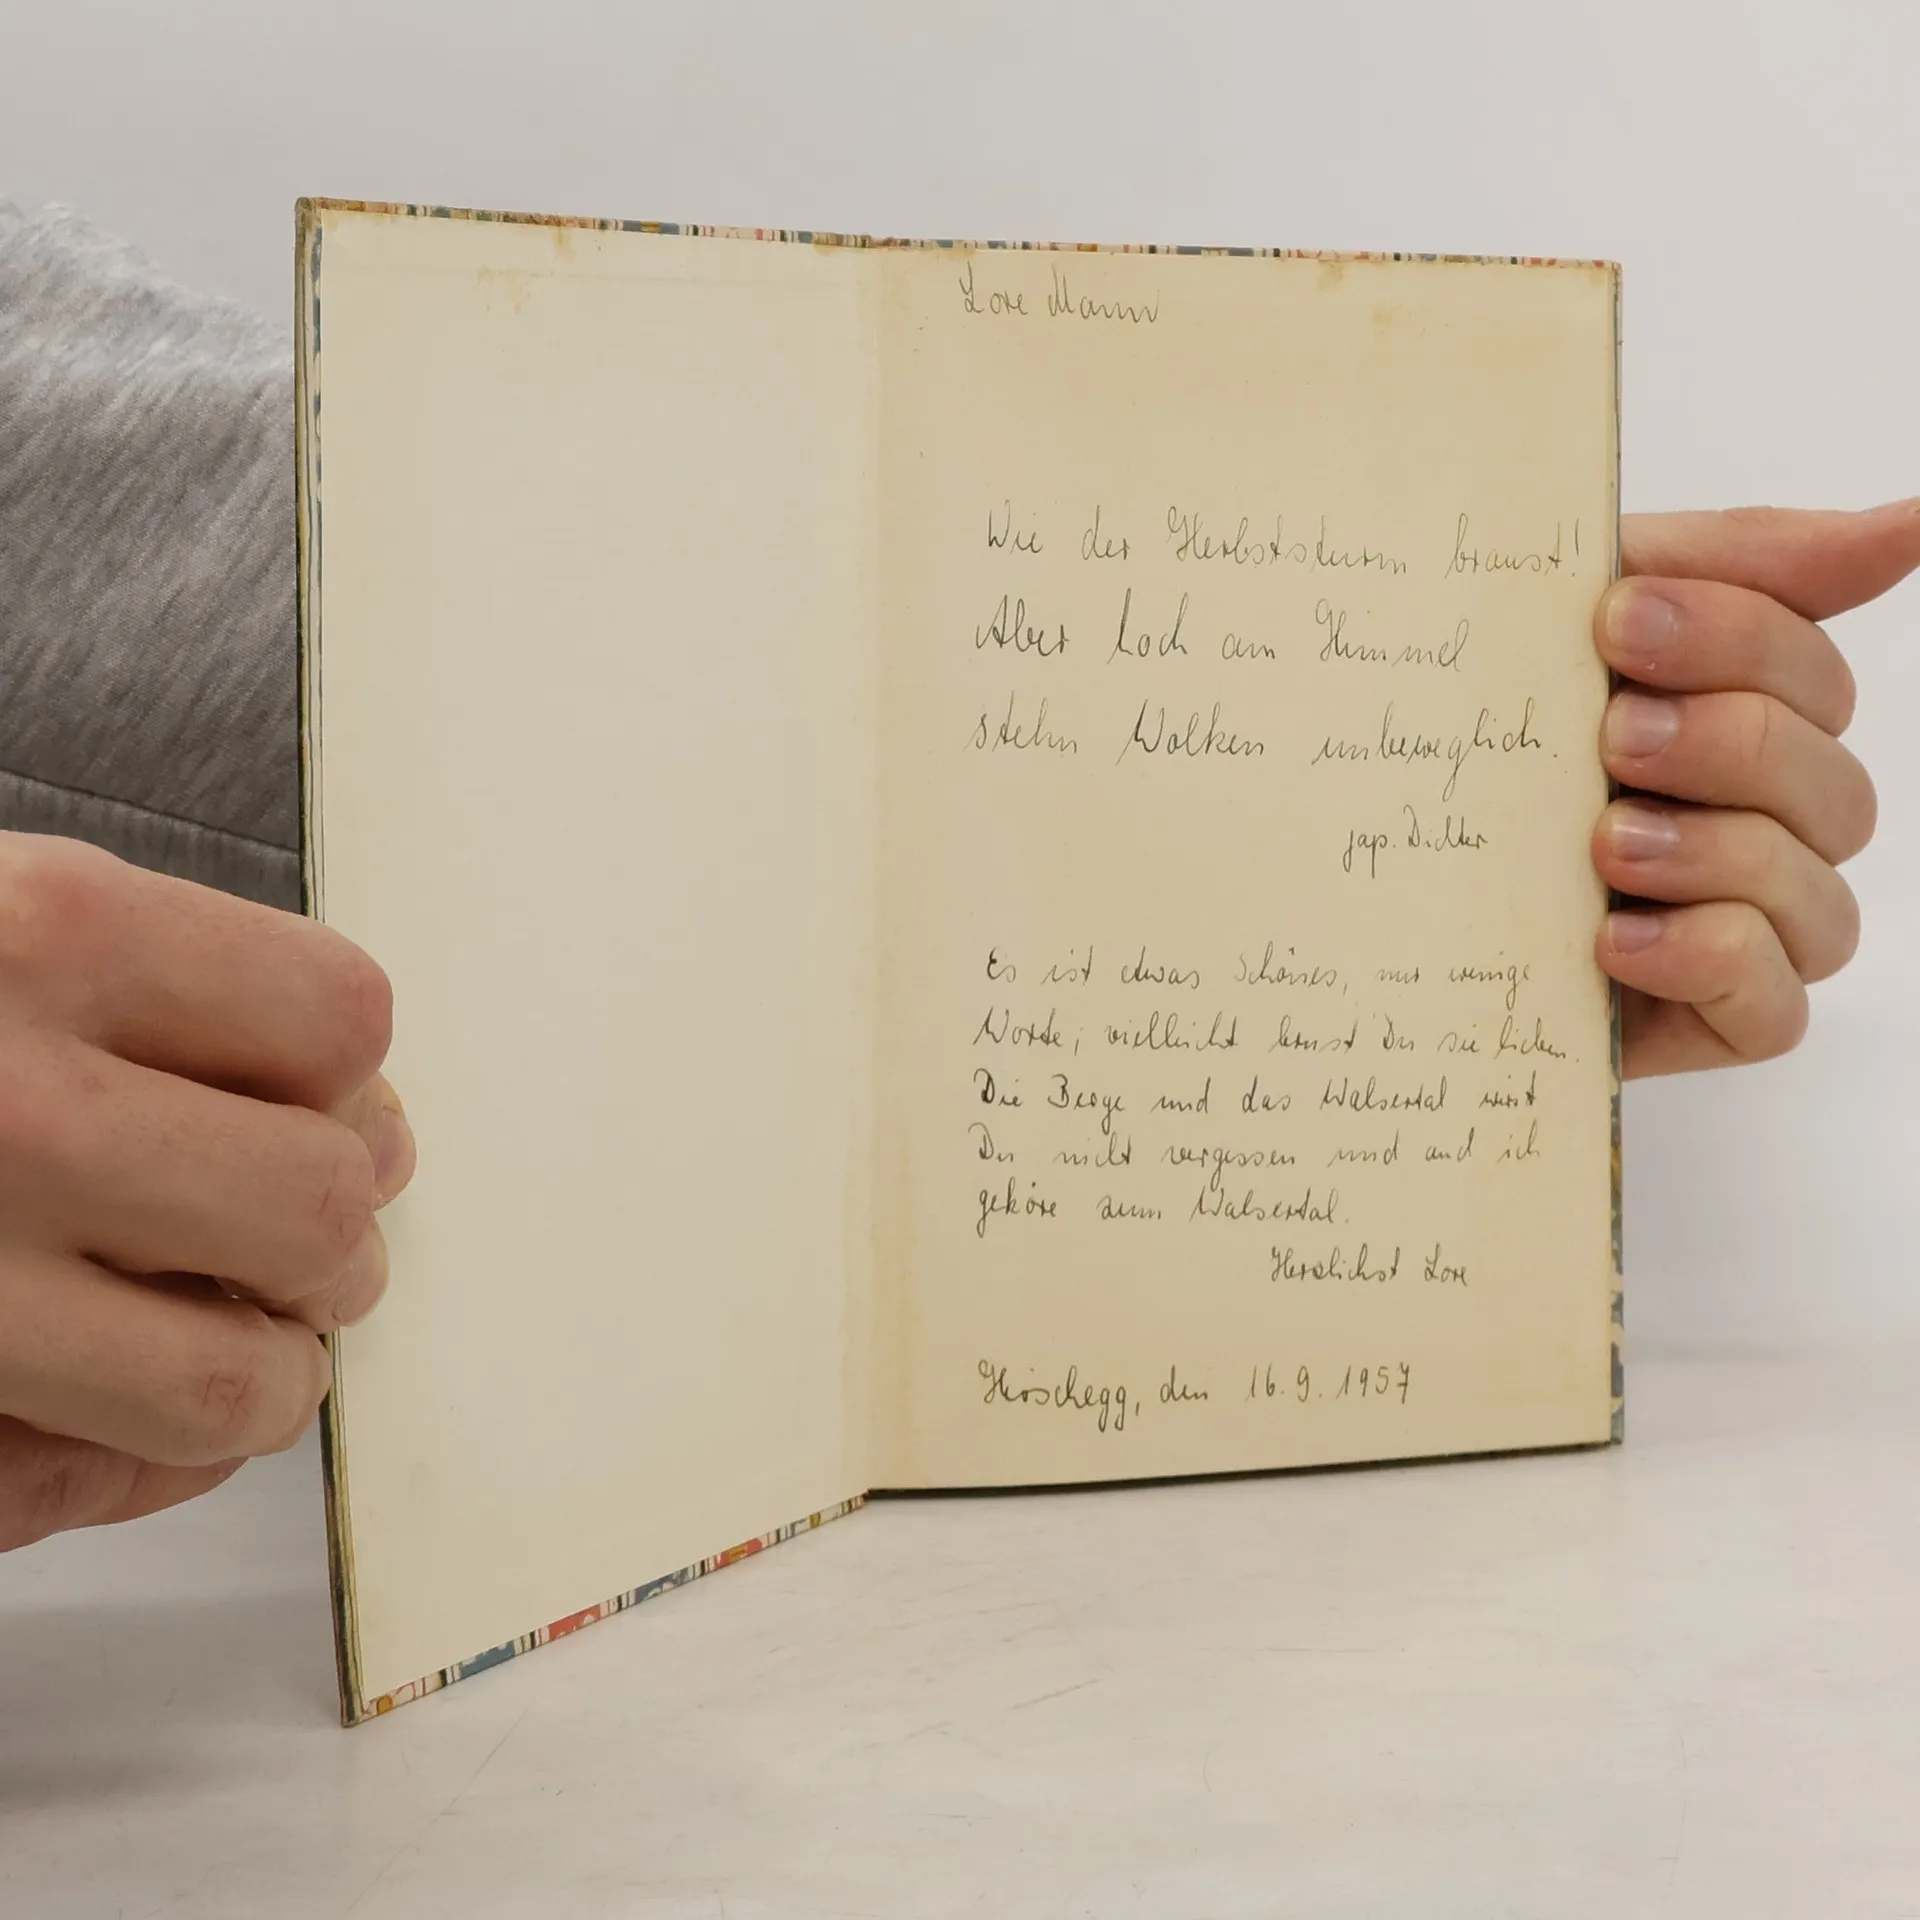 Lore Mann
Wie der Herbststurm braust!
Aber hoch am Himmel
stehn Wolken unbeweglich.
jap. Dichter
Es ist etwas Schönes, nur wenige
Worte; vielleicht lernst Du sie lieben.
Die Berge und das Walsertal wirst
Du nicht vergessen und auch ich
gehöre zum Walsertal.
Herzlichst Lore
Hirschegg, den 16.9.1957